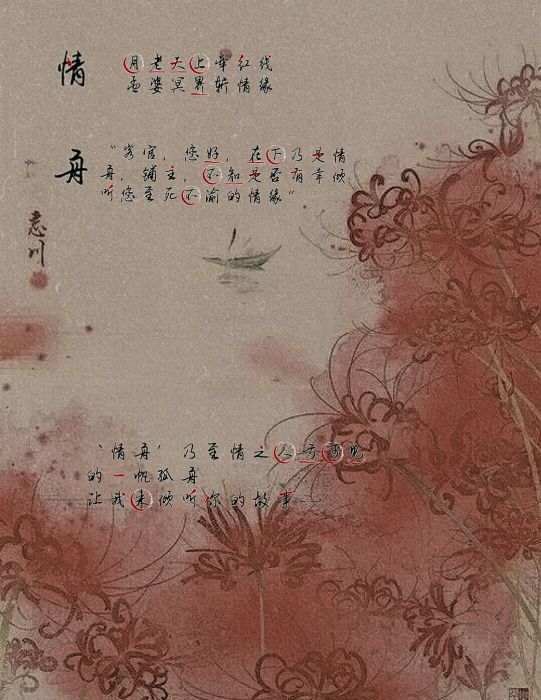 情舟
月老天上牵红线
孟婆冥界斩情缘
“客官，您好，在下乃是情
舟，铺主，不知是否有幸倾
听您至死不渝的情缘”
忘川
‘情舟’乃至情之人方可见
的一帆孤舟
让我来倾听你的故事……